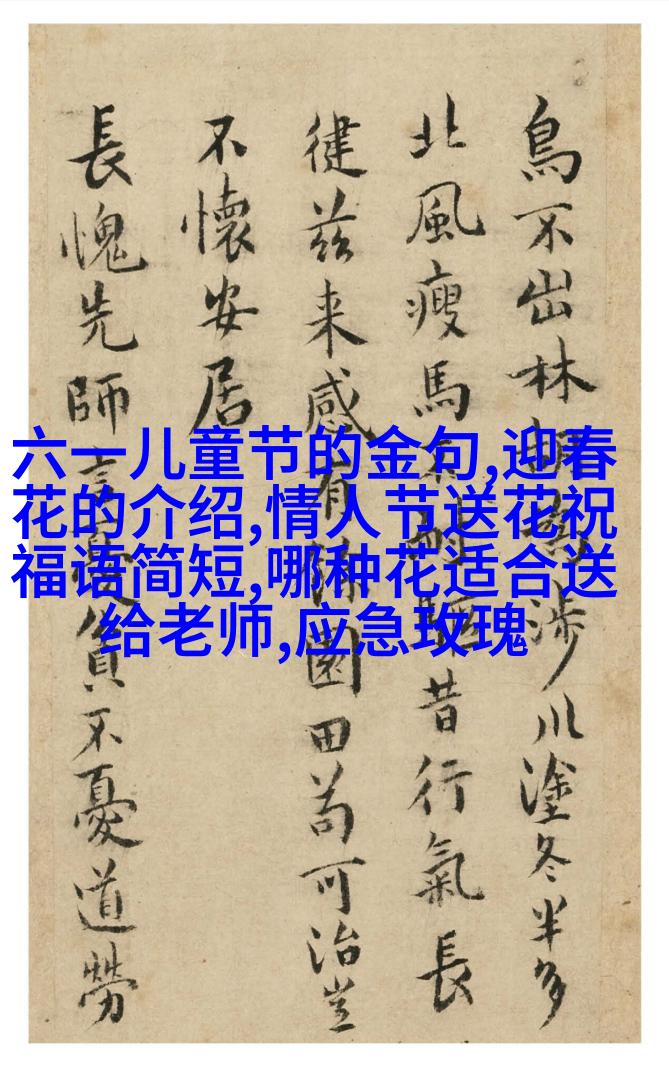 鳥不出林涉川塗冬半多
北風瘦馬昔行氣長
徤茲来感有園田苟可治豈
不懷安居
長愧先師言貧不憂道勞
六一儿童节的金句,迎春
花的介绍,情人节送花祝
福语简短,哪种花适合送
给老师,应急玫瑰